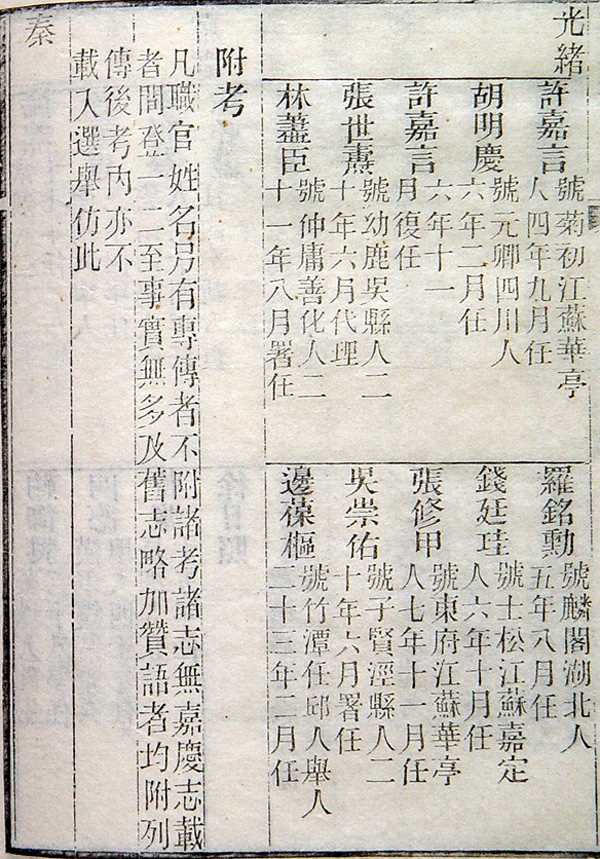 光緒
許嘉言
號菊初江蘇華亭
人四年九月任
羅銘勳
號麟閣湖北人
五年八月任
胡明慶
號元卿四川人
六年二月任
錢廷珪
號士松江蘇嘉定
人六年十月任
許嘉言
六年十一
月復任
張修甲
號東府江蘇華亭
人七年十一月任
張世燾
號幼鹿吳縣人二
十年六月代理
吳崇佑
號子賢涇縣人二
十年六月署任
林藎臣
號仲庸善化人二
十一年八月署任
邊葆樞
號竹潭任邱人舉人
二十三年二月任
附考
凡職官姓名另有專傳者不附諸考諸志無嘉慶志載
者間登一二至事實無多及舊志略加贊語者均附列
傳後考內亦不
載入選舉仿此
秦